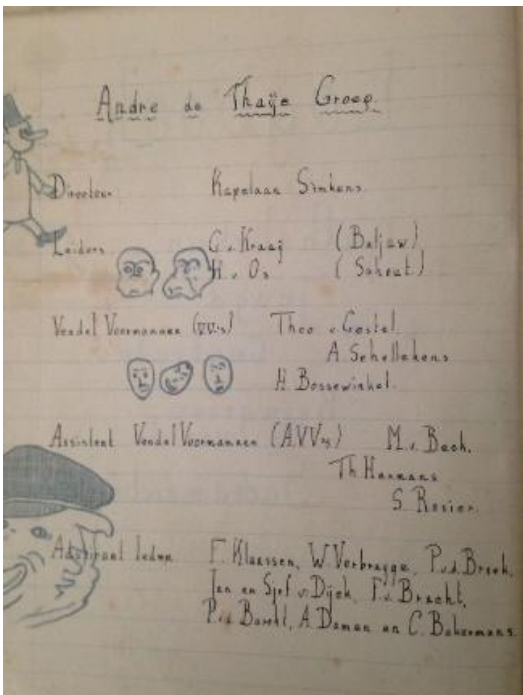 Andre de Thaÿe Groep.
Directeur Kapelaan Simkens.
Leiders G. v. Kraaij (Baljuw.)
H. v. Os (Schout.)
Vendel Voormannen (V.V.'s) Theo v. Gestel.
A. Schellekens
H. Bossewinkel.
Assistent Vendel Voormannen (A.V.V's) M. v. Bech.
Th. Harmans
S. Rosier.
Adspirant leden F. Klaassen, W. Verbrugge, P. v. d. Broek,
Jan en Sjef v. Dijck, F. v. Bracht,
P. v. d. A. Daman en C. Bakermans.